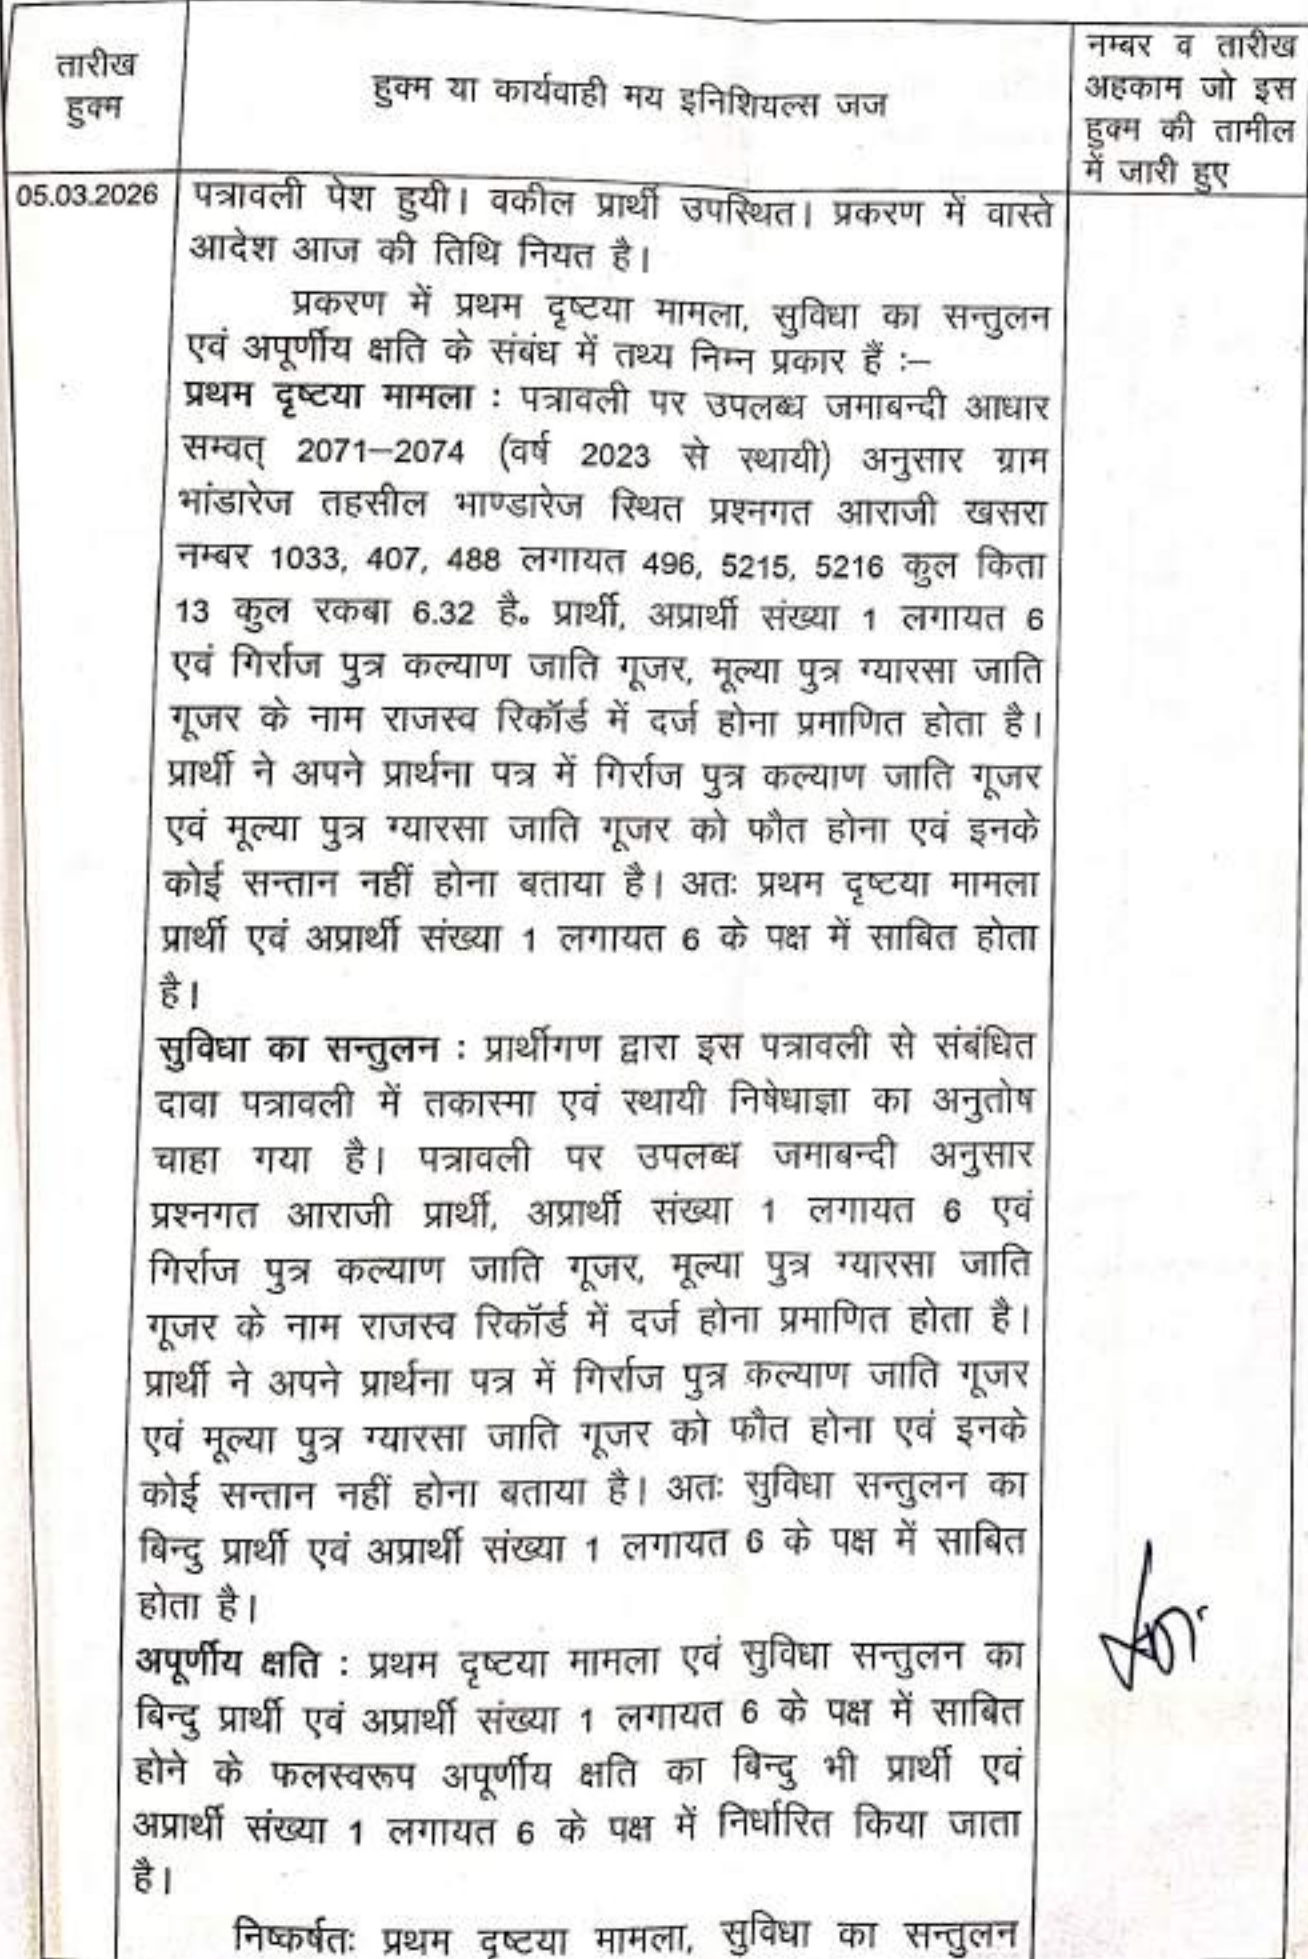 तारीख
हुक्म
हुक्म या कार्यवाही मय इनिशियल्स जज
नम्बर व तारीख
अहकाम जो इस
हुक्म की तामील
में जारी हुए
05.03.2026
पत्रावली पेश हुयी। वकील प्रार्थी उपस्थित। प्रकरण में वास्ते
आदेश आज की तिथि नियत है।
प्रकरण में प्रथम दृष्टया मामला, सुविधा का सन्तुलन
एवं अपूर्णीय क्षति के संबंध में तथ्य निम्न प्रकार हैं :–
प्रथम दृष्टया मामला : पत्रावली पर उपलब्ध जमाबन्दी आधार
सम्वत् 2071–2074 (वर्ष 2023 से स्थायी) अनुसार ग्राम
भांडारेज तहसील भाण्डारेज स्थित प्रश्नगत आराजी खसरा
नम्बर 1033, 407, 488 लगायत 496, 5215, 5216 कुल किता
13 कुल रकबा 6.32 है० प्रार्थी, अप्रार्थी संख्या 1 लगायत 6
एवं गिर्राज पुत्र कल्याण जाति गूजर, मूल्या पुत्र ग्यारसा जाति
गूजर के नाम राजस्व रिकॉर्ड में दर्ज होना प्रमाणित होता है।
प्रार्थी ने अपने प्रार्थना पत्र में गिर्राज पुत्र कल्याण जाति गूजर
एवं मूल्या पुत्र ग्यारसा जाति गूजर को फौत होना एवं इनके
कोई सन्तान नहीं होना बताया है। अतः प्रथम दृष्टया मामला
प्रार्थी एवं अप्रार्थी संख्या 1 लगायत 6 के पक्ष में साबित होता
है।
सुविधा का सन्तुलन : प्रार्थीगण द्वारा इस पत्रावली से संबंधित
दावा पत्रावली में तकास्मा एवं स्थायी निषेधाज्ञा का अनुतोष
चाहा गया है। पत्रावली पर उपलब्ध जमाबन्दी अनुसार
प्रश्नगत आराजी प्रार्थी, अप्रार्थी संख्या 1 लगायत 6 एवं
गिर्राज पुत्र कल्याण जाति गूजर, मूल्या पुत्र ग्यारसा जाति
गूजर के नाम राजस्व रिकॉर्ड में दर्ज होना प्रमाणित होता है।
प्रार्थी ने अपने प्रार्थना पत्र में गिर्राज पुत्र कल्याण जाति गूजर
एवं मूल्या पुत्र ग्यारसा जाति गूजर को फौत होना एवं इनके
कोई सन्तान नहीं होना बताया है। अतः सुविधा सन्तुलन का
बिन्दु प्रार्थी एवं अप्रार्थी संख्या 1 लगायत 6 के पक्ष में साबित
होता है।
अपूर्णीय क्षति : प्रथम दृष्टया मामला एवं सुविधा सन्तुलन का
बिन्दु प्रार्थी एवं अप्रार्थी संख्या 1 लगायत 6 के पक्ष में साबित
होने के फलस्वरूप अपूर्णीय क्षति का बिन्दु भी प्रार्थी एवं
अप्रार्थी संख्या 1 लगायत 6 के पक्ष में निर्धारित किया जाता
है।
निष्कर्षतः प्रथम दृष्टया मामला, सुविधा का सन्तुलन